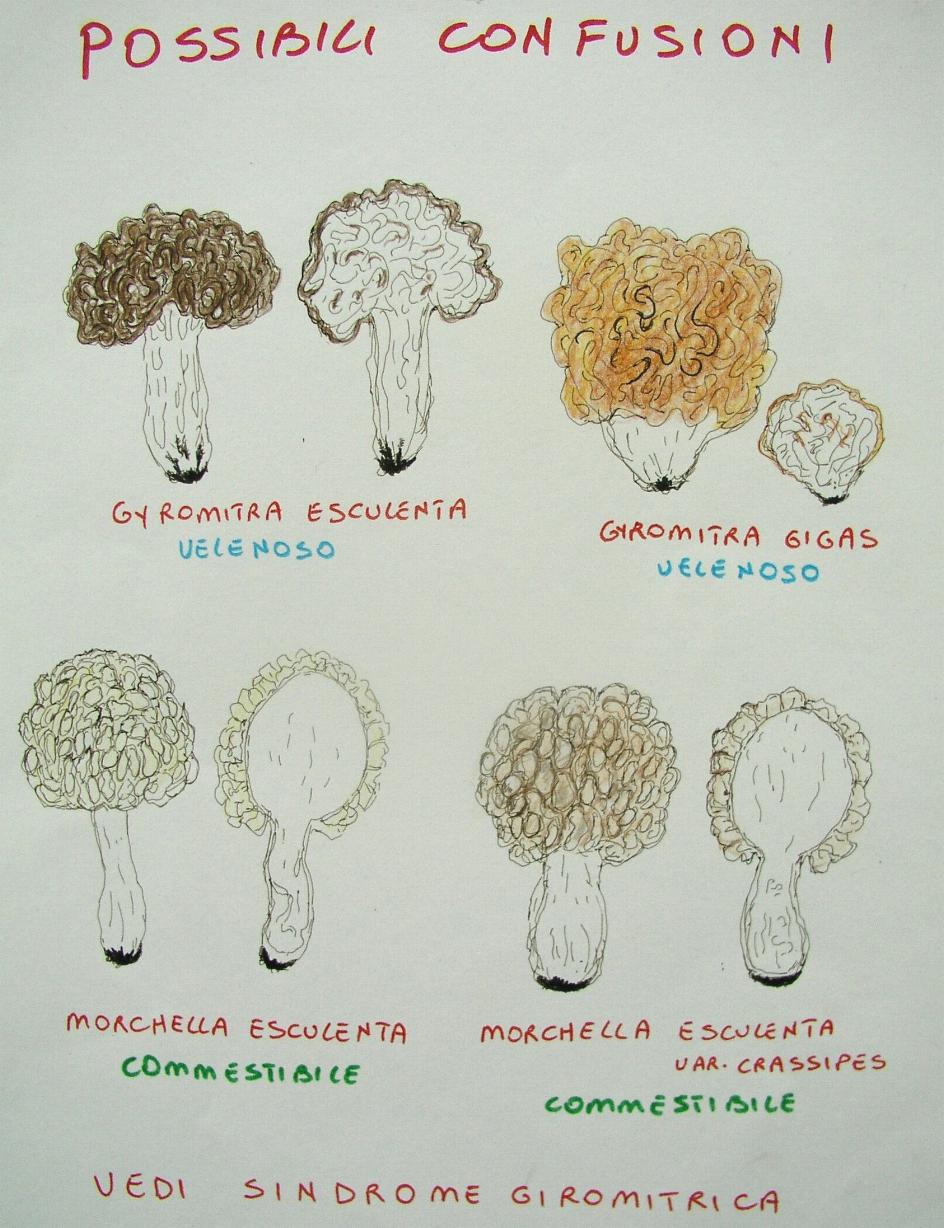 POSSIBILI CONFUSIONI
GYROMITRA ESCULENTA
VELENOSO
GYROMITRA GIGAS
VELENOSO
MORCHELLA ESCULENTA
COMMESTIBILE
MORCHELLA ESCULENTA
VAR. CRASSIPES
COMMESTIBILE
VEDI SINDROME GIROMITRICA